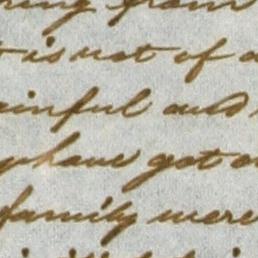 from
is not of a
ainful and
have got
family were